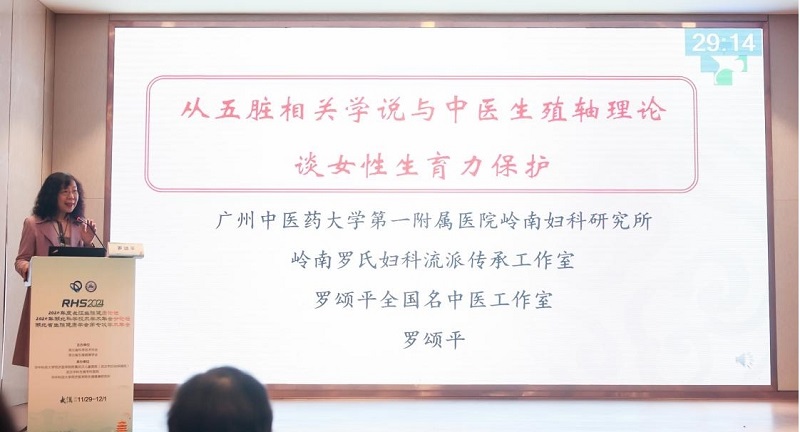 29:14
从五脏相关学说与中医生殖轴理论
谈女性生育力保护
广州中医药大学第一附属医院岭南妇科研究所
岭南罗氏妇科流派传承工作室
罗颂平全国名中医工作室
罗颂平
RHS2024
武汉
11/29-12/1